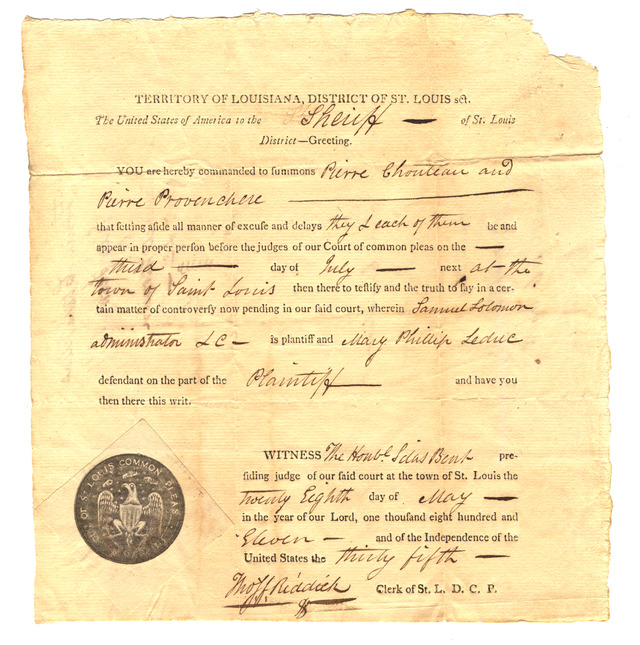 TERRITORY OF LOUISIANA, DISTRICT OF ST. LOUIS sct.
The United States of America to the Sheriff — of St. Louis
District—Greeting.
YOU are hereby commanded to summons Pierre Chouteau and
Pierre Provenchere
that ſetting aſide all manner of excuſe and delays they & each of them be and
appear in proper perſon before the judges of our Court of common pleas on the —
third — day of July — next at the
town of Saint Louis then there to teſtify and the truth to ſay in a cer-
tain matter of controverſy now pending in our ſaid court, wherein Samuel Solomon
administrator &C — is plaintiff and Mary Phillip Leduc
defendant on the part of the Plaintiff — and have you
then there this writ.
WITNESS The Honbl Silas Bent pre-
ſiding judge of our ſaid court at the town of St. Louis the
twenty Eighth day of May —
in the year of our Lord, one thouſand eight hundred and
Eleven — and of the Independence of the
United States the thirty fifth —
Thos. F. Riddick Clerk of St. L. D. C. P.
ST LOUIS COMMON PLEAS